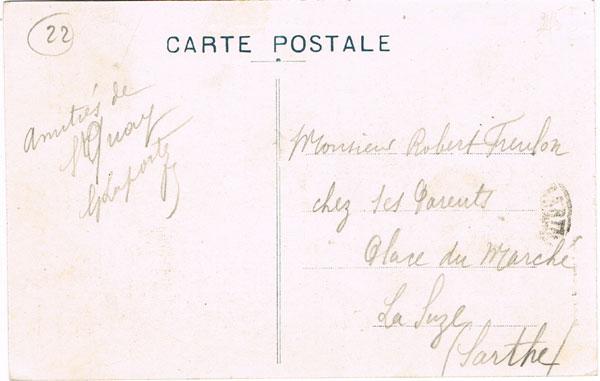 22
CARTE POSTALE
Amitiés de
St Quay
GLaporte
Monsieur Robert Freulon
chez ses Parents
Place du Marché
La Suze
(Sarthe)